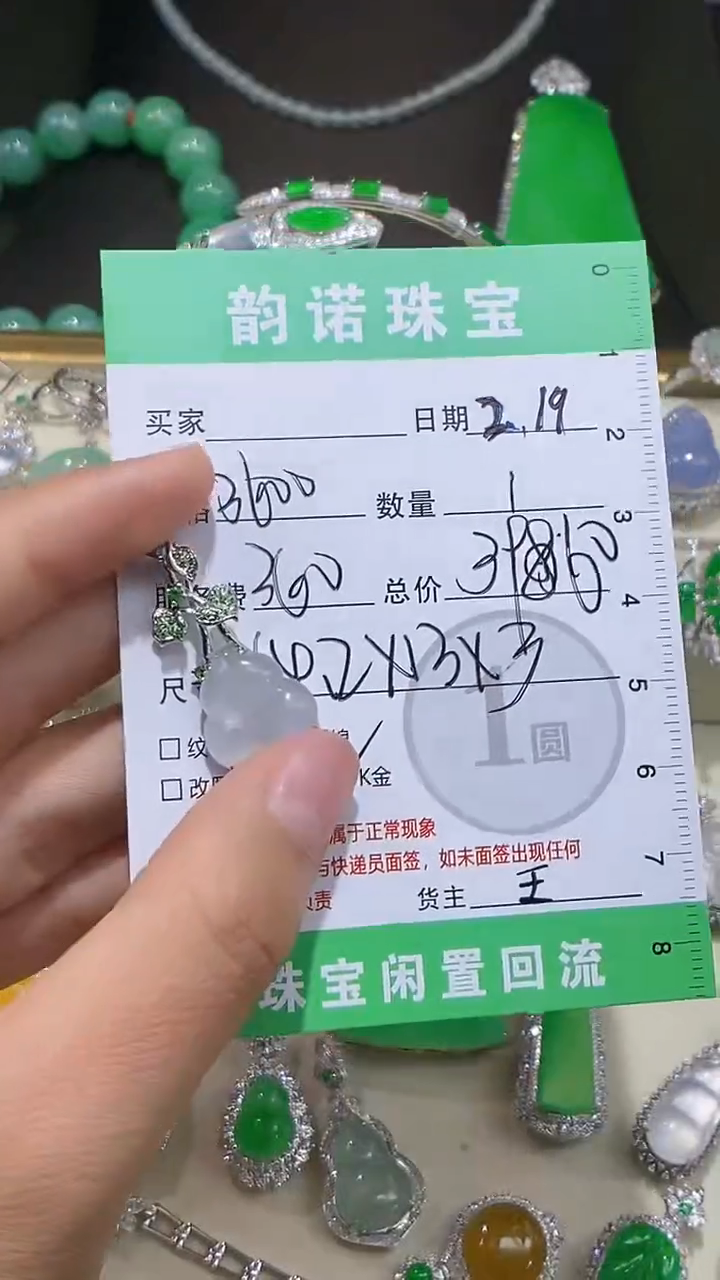 韵诺珠宝
买家 日期 2.19
格 3600 数量 1
服务费 360 总价 3960
尺 2X13X3
□纹 /
□改 K金
1圆
属于正常现象
与快递员面签，如未面签出现任何
负责 货主 王
珠宝闲置回流
0
1
2
3
4
5
6
7
8